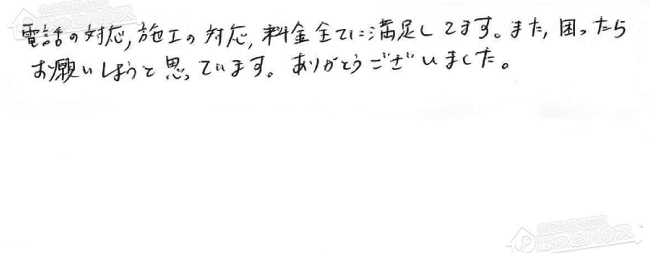 電話の対応,施工の対応,料金全てに満足してます。また,困ったら
お願いしようと思っています。ありがとうございました。